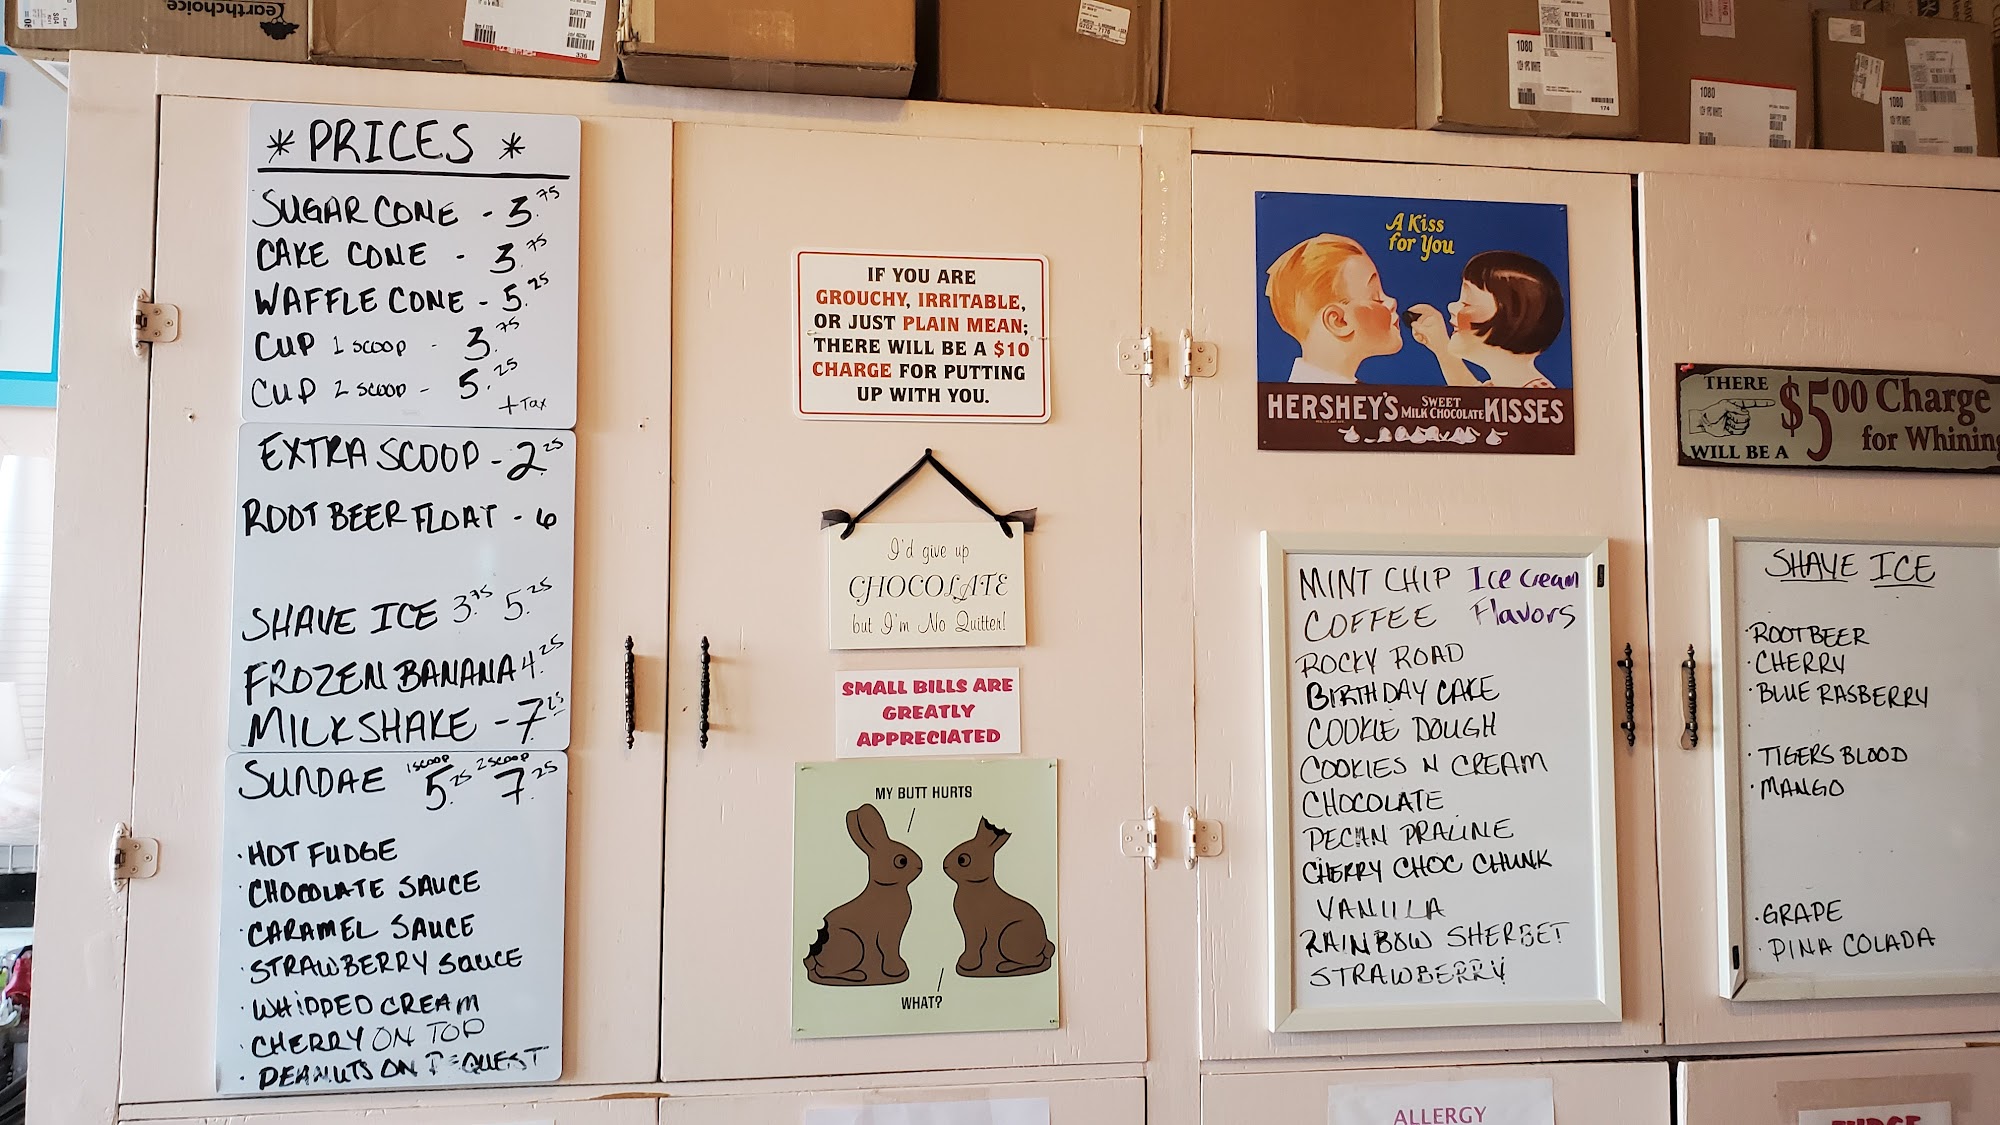 earthchoice
1080
1080
1080
* PRICES *
SUGAR CONE - 3.75
CAKE CONE - 3.75
WAFFLE CONE - 5.25
CUP 1 SCOOP - 3.75
CUP 2 SCOOP - 5.25
+ Tax
EXTRA SCOOP - 2.25
ROOT BEER FLOAT - 6
SHAVE ICE 3.75 5.25
FROZEN BANANA 4.25
MILKSHAKE - 7.25
SUNDAE 1 SCOOP 5.25 2 SCOOP 7.25
· HOT FUDGE
· CHOCOLATE SAUCE
· CARAMEL SAUCE
· STRAWBERRY SAUCE
· WHIPPED CREAM
· CHERRY ON TOP
· PEANUTS ON REQUEST
IF YOU ARE
GROUCHY, IRRITABLE,
OR JUST PLAIN MEAN;
THERE WILL BE A $10
CHARGE FOR PUTTING
UP WITH YOU.
I'd give up
CHOCOLATE
but I'm No Quitter!
SMALL BILLS ARE
GREATLY
APPRECIATED
MY BUTT HURTS
WHAT?
A Kiss
for You
HERSHEY'S SWEET MILK CHOCOLATE KISSES
THERE
WILL BE A
$5.00 Charge
for Whining
Ice Cream
Flavors
MINT CHIP
COFFEE
ROCKY ROAD
BIRTHDAY CAKE
COOKIE DOUGH
COOKIES N CREAM
CHOCOLATE
PECAN PRALINE
CHERRY CHOC CHUNK
VANILLA
RAINBOW SHERBET
STRAWBERRY
SHAVE ICE
· ROOTBEER
· CHERRY
· BLUE RASBERRY
· TIGERS BLOOD
· MANGO
· GRAPE
· PINA COLADA
ALLERGY
FUDGE